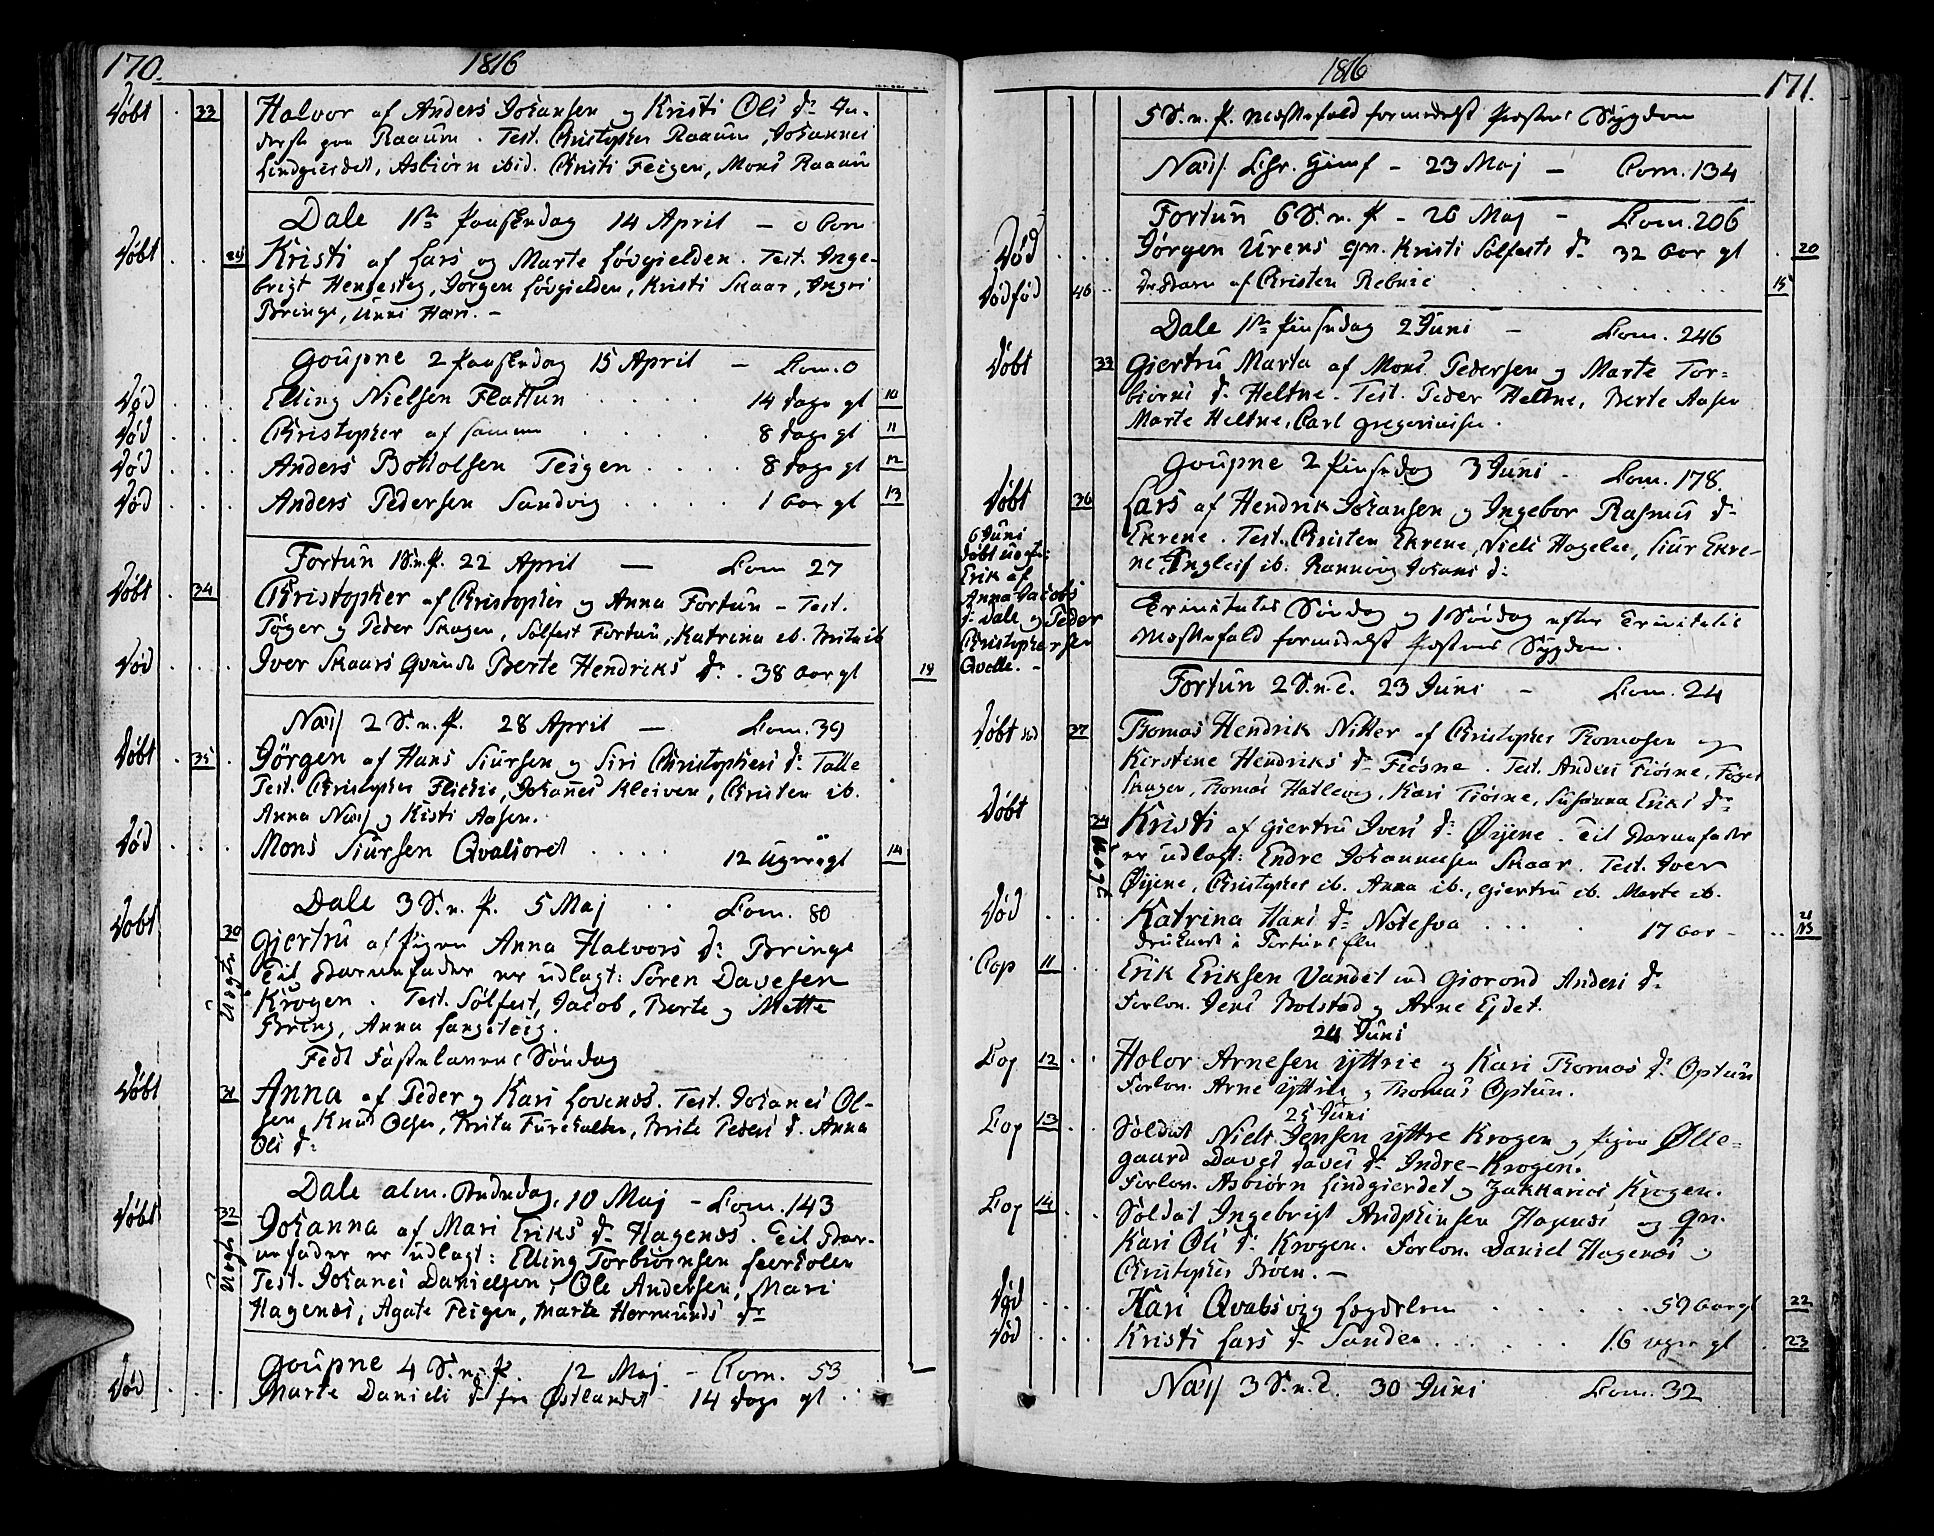 170. 1816
Døbt 33 Halvor af Anders Johansen og Kristi Ols dr
Raaum. Test. Christopher Raaum, Johannes
Lindgierdet, Asbiørn ibid. Christi Feigen, Mons Raaum
Dale 1ste Paaskedag 14 April - 0 Com
Døbt 29 Kristi af Lars og Marte Løvgielden. Test. Inge-
brigt Hengesteg, Jørgen Løvgielden, Kristi Skaar, Ingri
Bringe, Unni Har. -
Goupne 2 Paaskedag 15 April - Com. 0
Død Elling Nielsen Flattun 14 dage gl 10
Død Christopher af samme 8 dage gl 11
Død Anders Botholsen Teigen 8 dage gl 12
Død Anders Pedersen Sandvig 1 Aar gl 13
Fortun 1 S. n. P. 22 April - Com 27
Døbt 34 Christopher af Christopher og Anna Fortun - Test.
Tøger og Peder Skagen, Sølfest Fortun, Katrina ib.
Død Iver Skaars Qvinde Berte Hendriks dr. 38 Aar gl 19
Næs 2 S. n. P. 28 April - Com. 39
Døbt 35 Jörgen af Hans Siursen og Siri Christophers dr Talle
Test. Christopher Flickie, Johannes Kleiven, Christen ib.
Anna Næs og Kisti Aasen.
Død Mons Siursen Qvalsoret 12 Uger gl 14
Dale 3 S. n. P. 5 Maj Com. 80
Døbt 30 Uægte Gjertru af Pigen Anna Halvors dr Bringe
Til Barnefader er udlagt: Søren Davesen
Krogen. Test. Sølfest, Jacob, Berte og Mette
Bring, Anna Langsteig.
Født Fastelavens Søndag
Døbt 31 Anna af Peder og Kari Lovenæs. Test. Johanes Ol-
sen, Knud Olsen, Brita Furehalten, Brite Peders dr. Anna
Ols dr
Dale alm. Bededag, 10 Maj - Com. 143
Døbt 32 Uægte Johanna af Mari Eriks dr Hagenæs. Til Bar-
nefader er udlagt: Elling Torbiørnsen Leerholen
Test. Johanes Danielsen, Ole Andersen, Mari
Hagenæs, Agate Teigen, Marte Hermunds dr
Goupne 4 S. n. P. 12 Maj - Com. 53
Død Marte Daniels dr fra Østlandet 14 dage gl
1816 171.
5 S. n. P. Messefald formedelst Præstens Sygdom
Næs. Chr. Himf - 23 Maj - Com. 134
Fortun 6 S. n. P - 26 Maj - Com. 206
Død Jørgen Urens Qv. Kristi Sølfests dr 32 Aar gl 20
Dødfød 46 Barn af Christen Rebnie 15
Dale 1ste Pinsedag 2 Juni - Com. 246
Døbt 33 Giertru Marta af Mons Pedersen og Marte Tor-
biørns dr. Heltne. Test. Peder Heltne, Berte Aasen
Marte Heltne, Carl Gregoriusen.
Goupne 2 Pinsedag 3 Juni - Com. 178.
Døbt 36 Lars af Hendrik Johansen og Ingebor Rasmus dr
Ekrene. Test. Christen Ekrene, Niels Hageler, Siur Ekre-
ne Engleif ib. Rannvig Johans dr
6 Juni
døbt uægte:
Erik af
Anna Jacobs
dr Dale og Peder
Christophersen
Qvalle. -
Trinitatis Søndag og 1 Søndag efter Trinitatis
Messefald formedelst Præstens Sygdom.
Fortun 2 S. n. T. 23 Juni - Com. 24
Døbt 37 Thomas Hendrik Nitter af Christopher Thomasen og
Kirstine Hendriks dr Fiøsne. Test. Anders Fiøsne, Tøger
Skagen, Thomas Hatleveg, Kari Fiøsne, Susanna Eriks dr
Døbt 34 Uægte Kristi af Giertru Ivers dr Øyene. Til Barnefader
er udlagt: Endre Johannesen Skaar. Test. Iver
Øyene, Christopher ib. Anna ib., Giertru ib. Marte ib.
Død Katrina Hans dr Notesva 17 Aar - 21
druknet i Fortuns Elv
Cop 11 Erik Eriksen Vandet med Giorond Anders dr
Forlov. Jens Bolstad og Arne Ejdet.
24 Juni
Cop 12 Holor Arnesen Yttrie og Kari Thomas dr. Optun
Forlov. Arne Yttrie og Thomas Optun.
25 Juni
Cop 13 Soldat Niels Jensen Yttre Krogen og Pigen Ølle-
gaard Daves Daves dr Indre-Krogen.
Forlov. Asbiørn Lindgierdet og Zakkarias Krogen.
Cop 14 Soldat Ingebrigt Andphinsen Hagenæs og Qv.
Kari Ols dr Krogen. Forlov. Daniel Hagenæs og
Christopher Moen. -
Død Kari Qvalsvig Lægdelem 59 Aar gl 22
Død Kristi Lars dr Sanden 16 uger gl 23
Næs 3 S. n. T. 30 Juni Com. 32